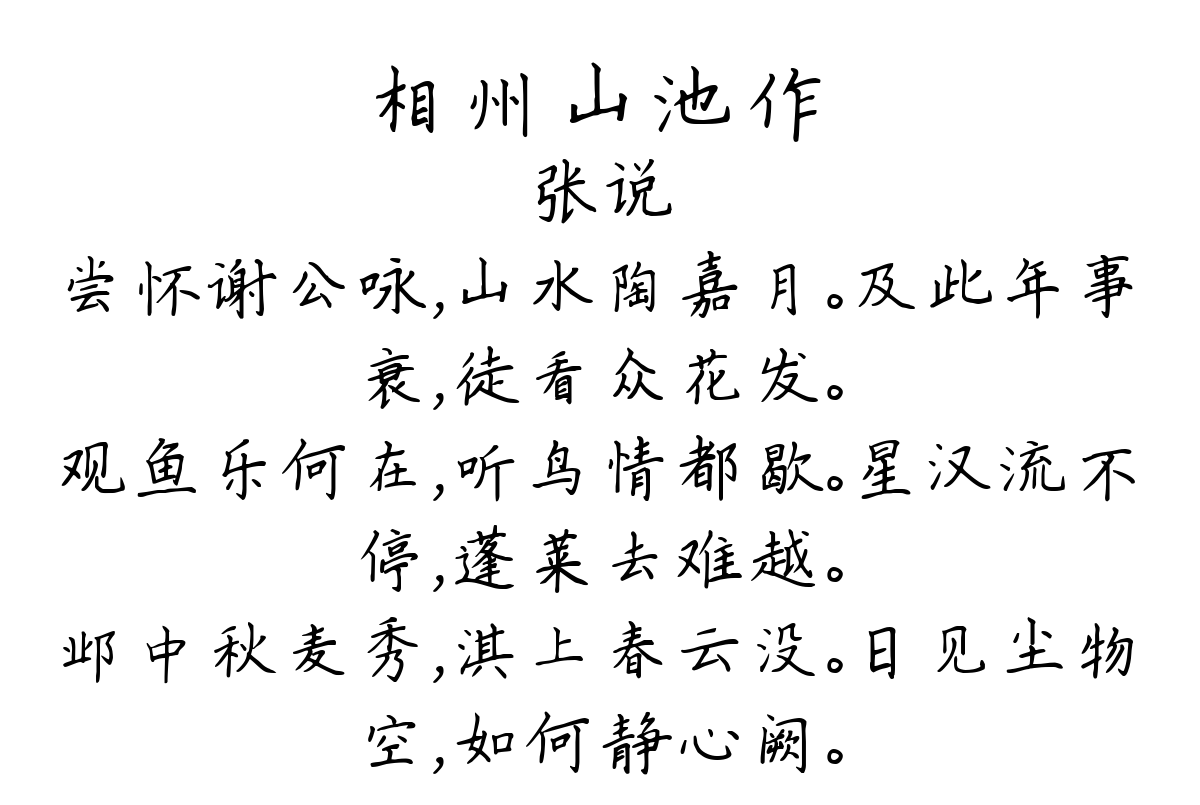 相州山池作
张说
尝怀谢公咏,山水陶嘉月。及此年事
衰,徒看众花发。
观鱼乐何在,听鸟情都歇。星汉流不
停,蓬莱去难越。
邺中秋麦秀,淇上春云没。日见尘物
空,如何静心阙。